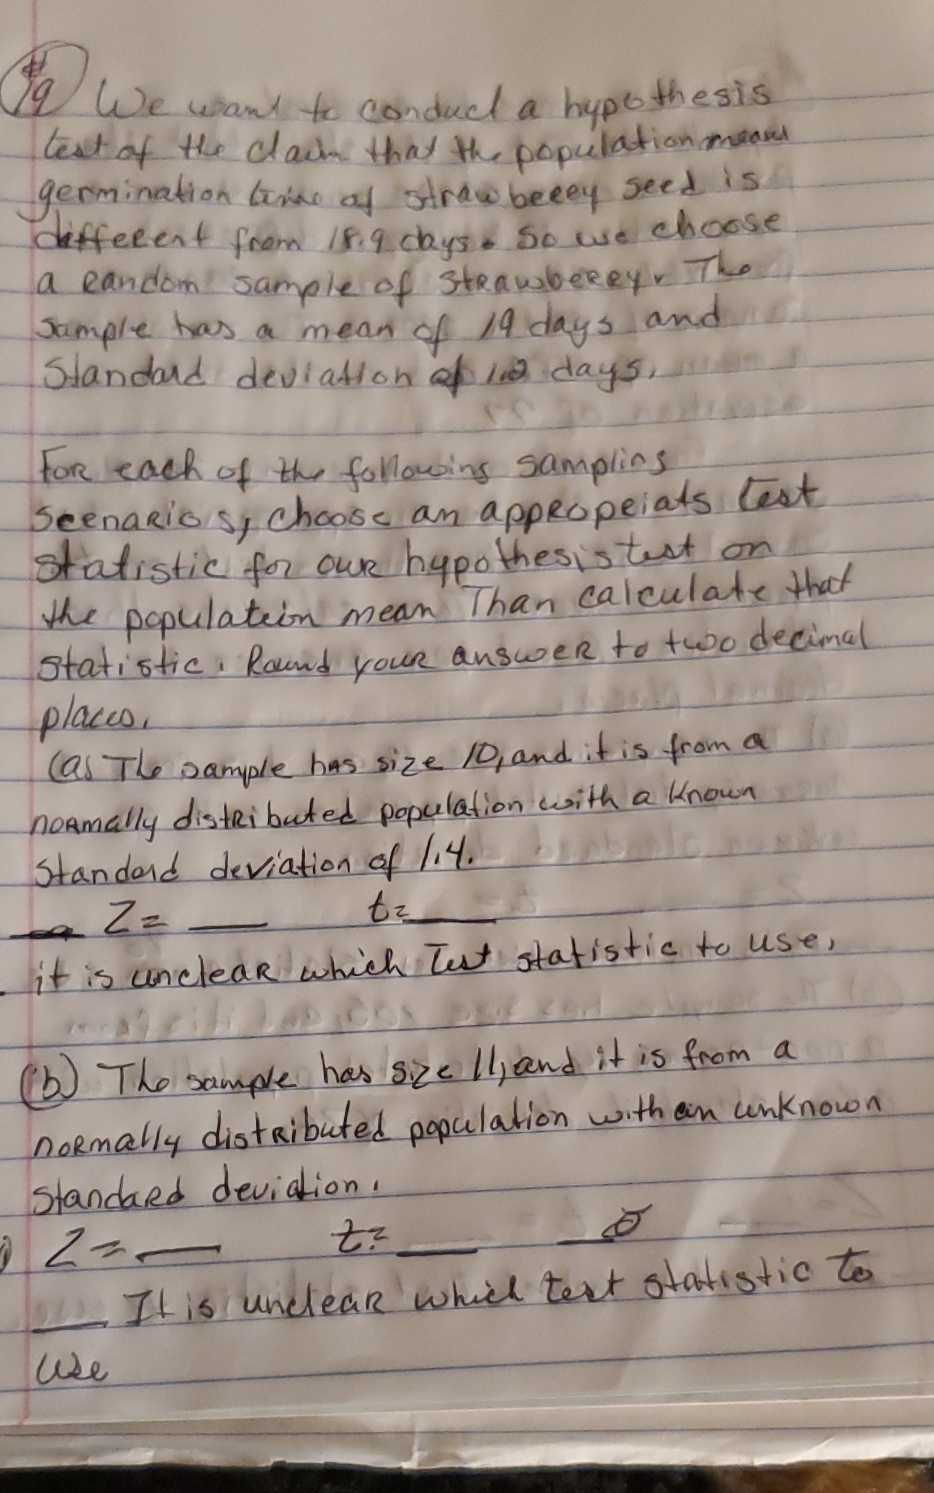 #9 We want to conduct a hypothesis
test of the claim that the population mean
germination time of strawbeeey seed is
different from 18.9 days. So we choose
a random sample of strawbeeey. The
sample has a mean of 19 days and
standard deviation of 1.2 days.
For each of the following sampling
Scenarios, choose an appropeiate test
statistic for our hypothesis test on
the population mean Than calculate that
statistic. Round your answer to two decimal
places.
(a) The sample has size 10, and it is from a
normally distributed population with a known
standard deviation of 1.4.
Z = ___ t = ___
it is unclear which Test statistic to use.
(b) The sample has size 11, and it is from a
normally distributed population with an unknown
standard deviation.
Z = ___ t = ___
___ It is unclear which test statistic to
use